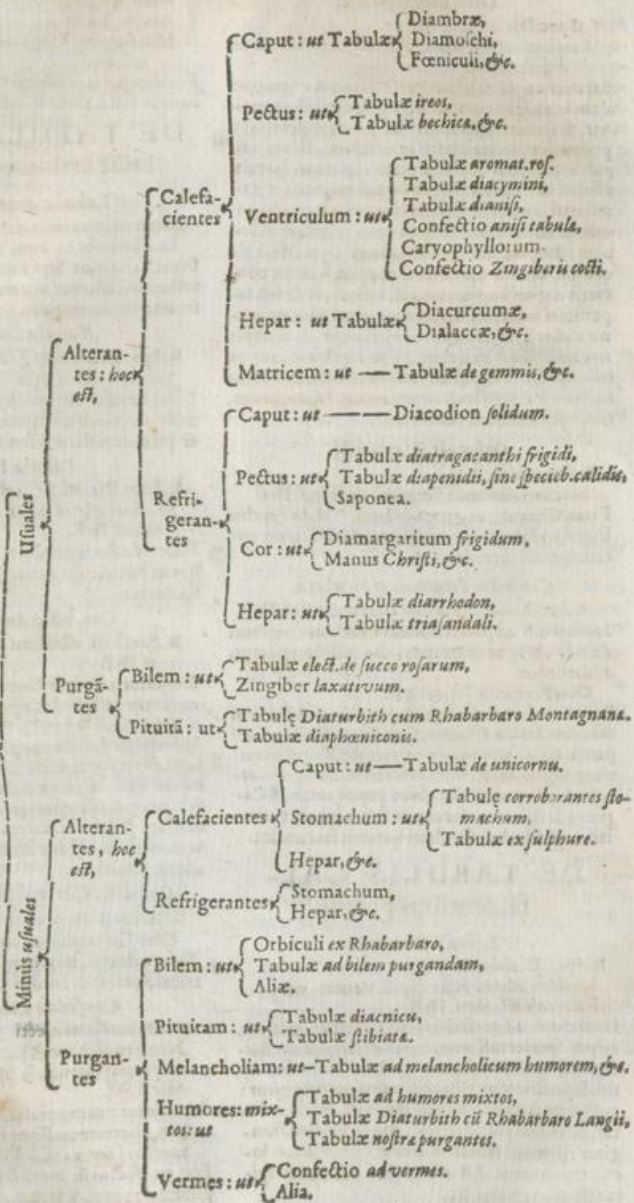 Usuales
Alteran-
tes: hoc
est,
Calefa-
cientes
Caput: ut Tabulæ
Diambræ,
Diamoſchi,
Fœniculi, &c.
Pectus: ut
Tabulæ ireos,
Tabulæ bechicæ, &c.
Ventriculum: ut
Tabulæ aromat.roſ.
Tabulæ diacymini,
Tabulæ dianiſi,
Confectio aniſi tabulæ,
Caryophyllorum.
Confectio Zingiberis cocti.
Hepar: ut Tabulæ
Diacurcumæ,
Dialaccæ, &c.
Matricem: ut — Tabulæ de gemmis, &c.
Refri-
geran-
tes
Caput: ut — Diacodion ſolidum.
Pectus: ut
Tabulæ diatragacanthi frigidi,
Tabulæ diapenidii, ſine ſpecieb.calidis,
Saponea.
Cor: ut
Diamargaritum frigidum,
Manus Chriſti, &c.
Hepar: ut
Tabulæ diarrhodon,
Tabulæ triaſandali.
Purgã-
tes
Bilem: ut
Tabulæ elect. de ſucco roſarum,
Zingiber laxativum.
Pituitã: ut
Tabulę Diaturbith cum Rhabarbaro Montagnanæ.
Tabulæ diaphœniconis.
Minus uſuales
Alteran-
tes, hoc
eſt,
Calefacientes
Caput: ut — Tabulæ de unicornu.
Stomachum: ut
Tabulę corroborantes ſto-
machum,
Tabulæ ex ſulphure.
Hepar, &c.
Refrigerantes
Stomachum,
Hepar, &c.
Purgan-
tes
Bilem: ut
Orbiculi ex Rhabarbaro,
Tabulæ ad bilem purgandam,
Aliæ.
Pituitam: ut
Tabulæ diacnicu,
Tabulæ ſtibiatæ.
Melancholiam: ut – Tabulæ ad melancholicum humorem, &c.
Humores: mix-
tos: ut
Tabulæ ad humores mixtos,
Tabulæ Diaturbith cũ Rhabarbaro Langii,
Tabulæ noſtræ purgantes.
Vermes: ut
Confectio ad vermes.
Alia.